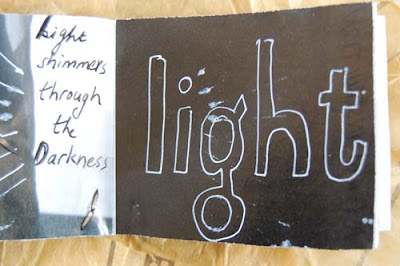 Light
shimmers
through
the
Darkness
light